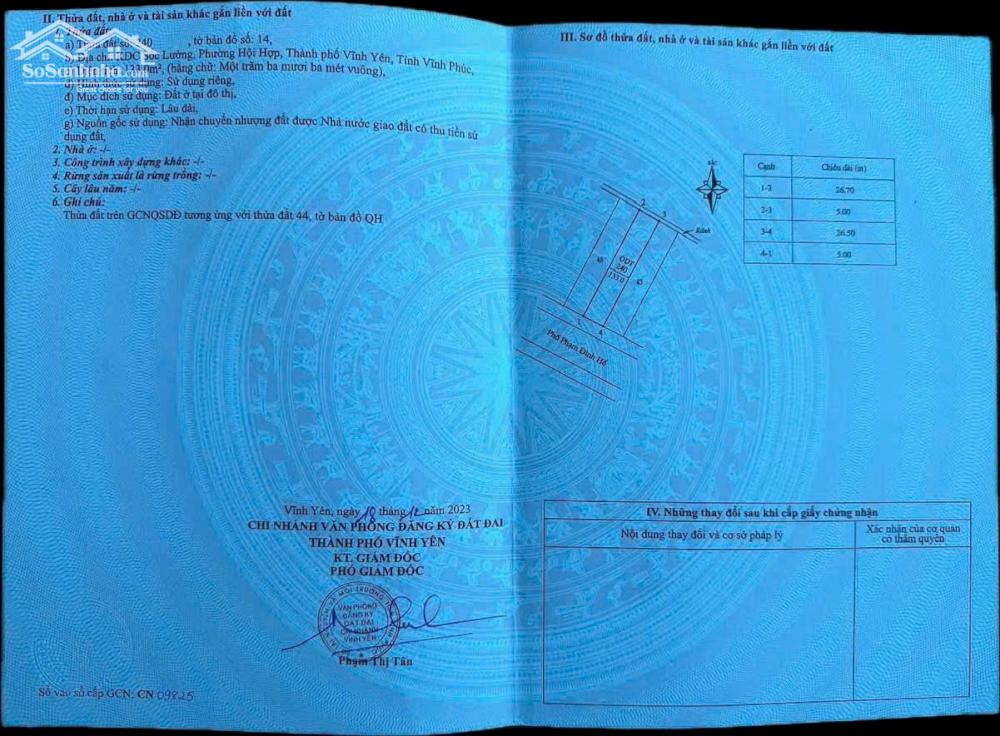 II. Thửa đất, nhà ở và tài sản khác gắn liền với đất
1. Thửa đất:
a) Thửa đất số: 240 , tờ bản đồ số: 14,
b) Địa chỉ: KDC Sóc Lường, Phường Hội Hợp, Thành phố Vĩnh Yên, Tỉnh Vĩnh Phúc,
133.0m², (bằng chữ: Một trăm ba mươi ba mét vuông),
d) Hình thức sử dụng: Sử dụng riêng,
đ) Mục đích sử dụng: Đất ở tại đô thị,
e) Thời hạn sử dụng: Lâu dài,
g) Nguồn gốc sử dụng: Nhận chuyển nhượng đất được Nhà nước giao đất có thu tiền sử
dụng đất,
2. Nhà ở: -/-
3. Công trình xây dựng khác: -/-
4. Rừng sản xuất là rừng trồng: -/-
5. Cây lâu năm: -/-
6. Ghi chú:
Thửa đất trên GCNQSDĐ tương ứng với thửa đất 44, tờ bản đồ QH
SoSanhnha.com
Vĩnh Yên, ngày 18 tháng 12 năm 2023
CHI NHÁNH VĂN PHÒNG ĐĂNG KÝ ĐẤT ĐAI
THÀNH PHỐ VĨNH YÊN
KT. GIÁM ĐỐC
PHÓ GIÁM ĐỐC
VĂN PHÒNG
ĐĂNG KÝ
ĐẤT ĐAI
CHI NHÁNH
VĨNH YÊN
Phạm Thị Tân
Số vào sổ cấp GCN: CN 09825
III. Sơ đồ thửa đất, nhà ở và tài sản khác gắn liền với đất
Bắc
2
3
Rãnh
ODT
240
133.0
45
1
4
Phố Phạm Đình Hổ
Cạnh Chiều dài (m)
1-2 26.70
2-3 5.00
3-4 26.50
4-1 5.00
IV. Những thay đổi sau khi cấp giấy chứng nhận
Nội dung thay đổi và cơ sở pháp lý
Xác nhận của cơ quan
có thẩm quyền